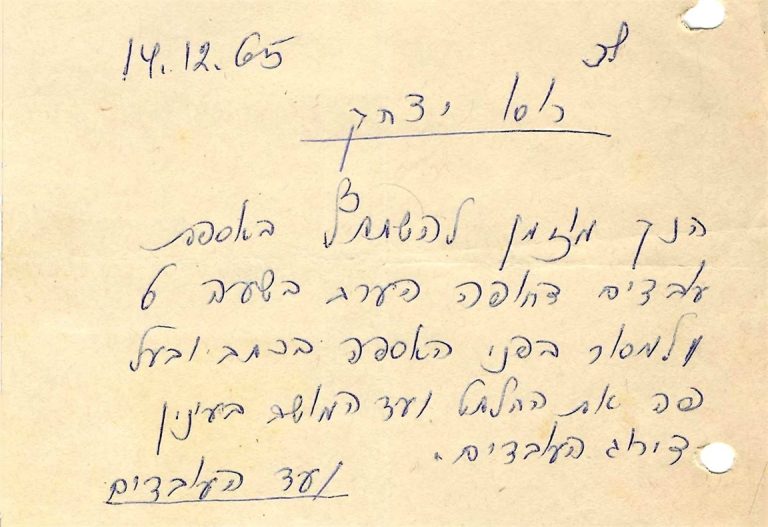 14.12.65
לכ
רוסו יצחק
הנך מוזמן להשתתף באספת
עובדים דחופה הערב בשעה 6
ולמסור בפני האספה בכתב ובעל
פה את החלטת ועד המושב בענין
דירוג העובדים.
ועד העובדים